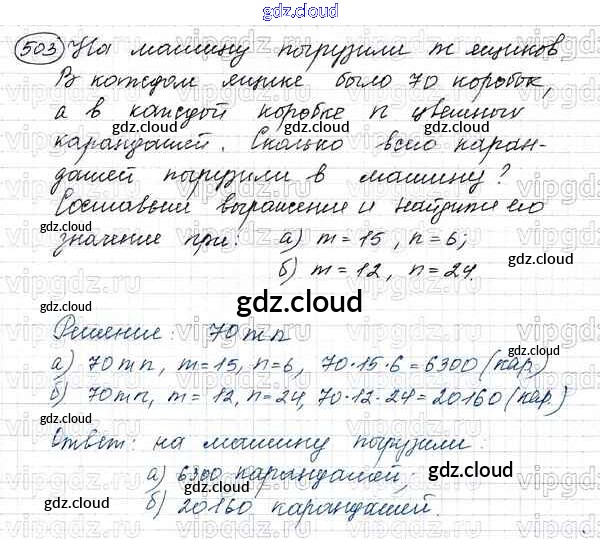 gdz.cloud
503 На машину погрузили m ящиков,
В каждом ящике было 70 коробок,
а в каждой коробке n цветных
gdz.cloud gdz.cloud
карандашей. Сколько всего каран-
дашей погрузили в машину?
Составьте выражение и найдите его
gdz.cloud gdz.cloud
значение при: а) m = 15, n = 6;
б) m = 12, n = 24.
gdz.cloud
Решение: 70mn
gdz.cloud gdz.cloud
а) 70mn, m=15, n=6, 70·15·6=6300 (кар.)
б) 70mn, m=12, n=24, 70·12·24=20160 (кар.)
gdz.cloud
Ответ: на машину погрузили:
а) 6300 карандашей;
gdz.cloud gdz.cloud
б) 20160 карандашей.